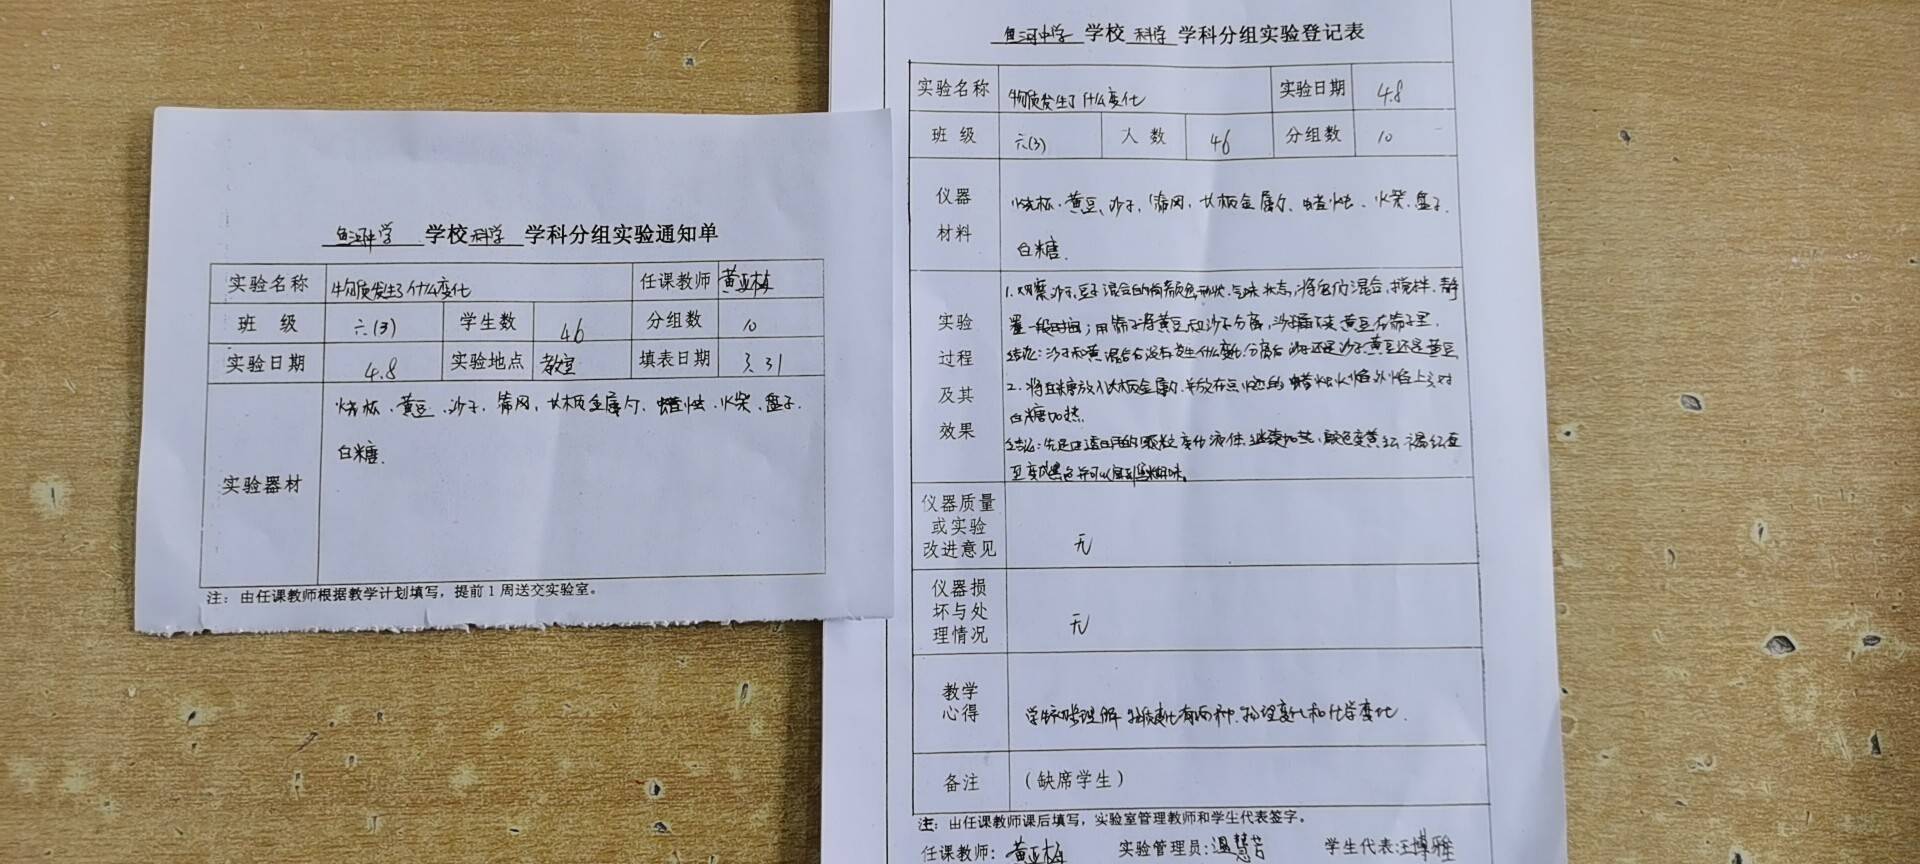 鱼河中学 学校 科学 学科分组实验通知单
实验名称 物质发生了什么变化 任课教师 黄亚梅
班 级 六(3) 学生数 46 分组数 10
实验日期 4.8 实验地点 教室 填表日期 3.31
实验器材 烧杯、黄豆、沙子、筛网、长柄金属勺、蜡烛、火柴、盘子、
白糖.
注：由任课教师根据教学计划填写，提前1周送交实验室。
鱼河中学 学校 科学 学科分组实验登记表
实验名称 物质发生了什么变化 实验日期 4.8
班 级 六(3) 人 数 46 分组数 10
仪器材料 烧杯、黄豆、沙子、筛网、长柄金属勺、蜡烛、火柴、盘子、
白糖.
实验过程及其效果
1.观察沙子,豆子混合的前颜色,形状,气味,状态,将它们混合,搅拌,静
置一段时间;用筛子将黄豆和沙子分离,沙子 黄豆在筛子里.
结论:沙子和黄 混合后没有发生什么变化,分离后沙子还是沙子黄豆还是黄豆
2.将白糖放入长柄金属勺,并放在 的蜡烛火焰外焰上,对
白糖加热
结论:先是 透明的颗粒变化液体,继续加热,颜色变黄红,褐红直
至变成黑色并可以闻到焦糊味。
仪器质量或实验改进意见 无
仪器损坏与处理情况 无
教学心得 学生 理解 物质变化有两种,物理变化和化学变化.
备注 （缺席学生）
注：由任课教师课后填写，实验室管理教师和学生代表签字。
任课教师：黄亚梅 实验管理员：温慧芳 学生代表：王博雅